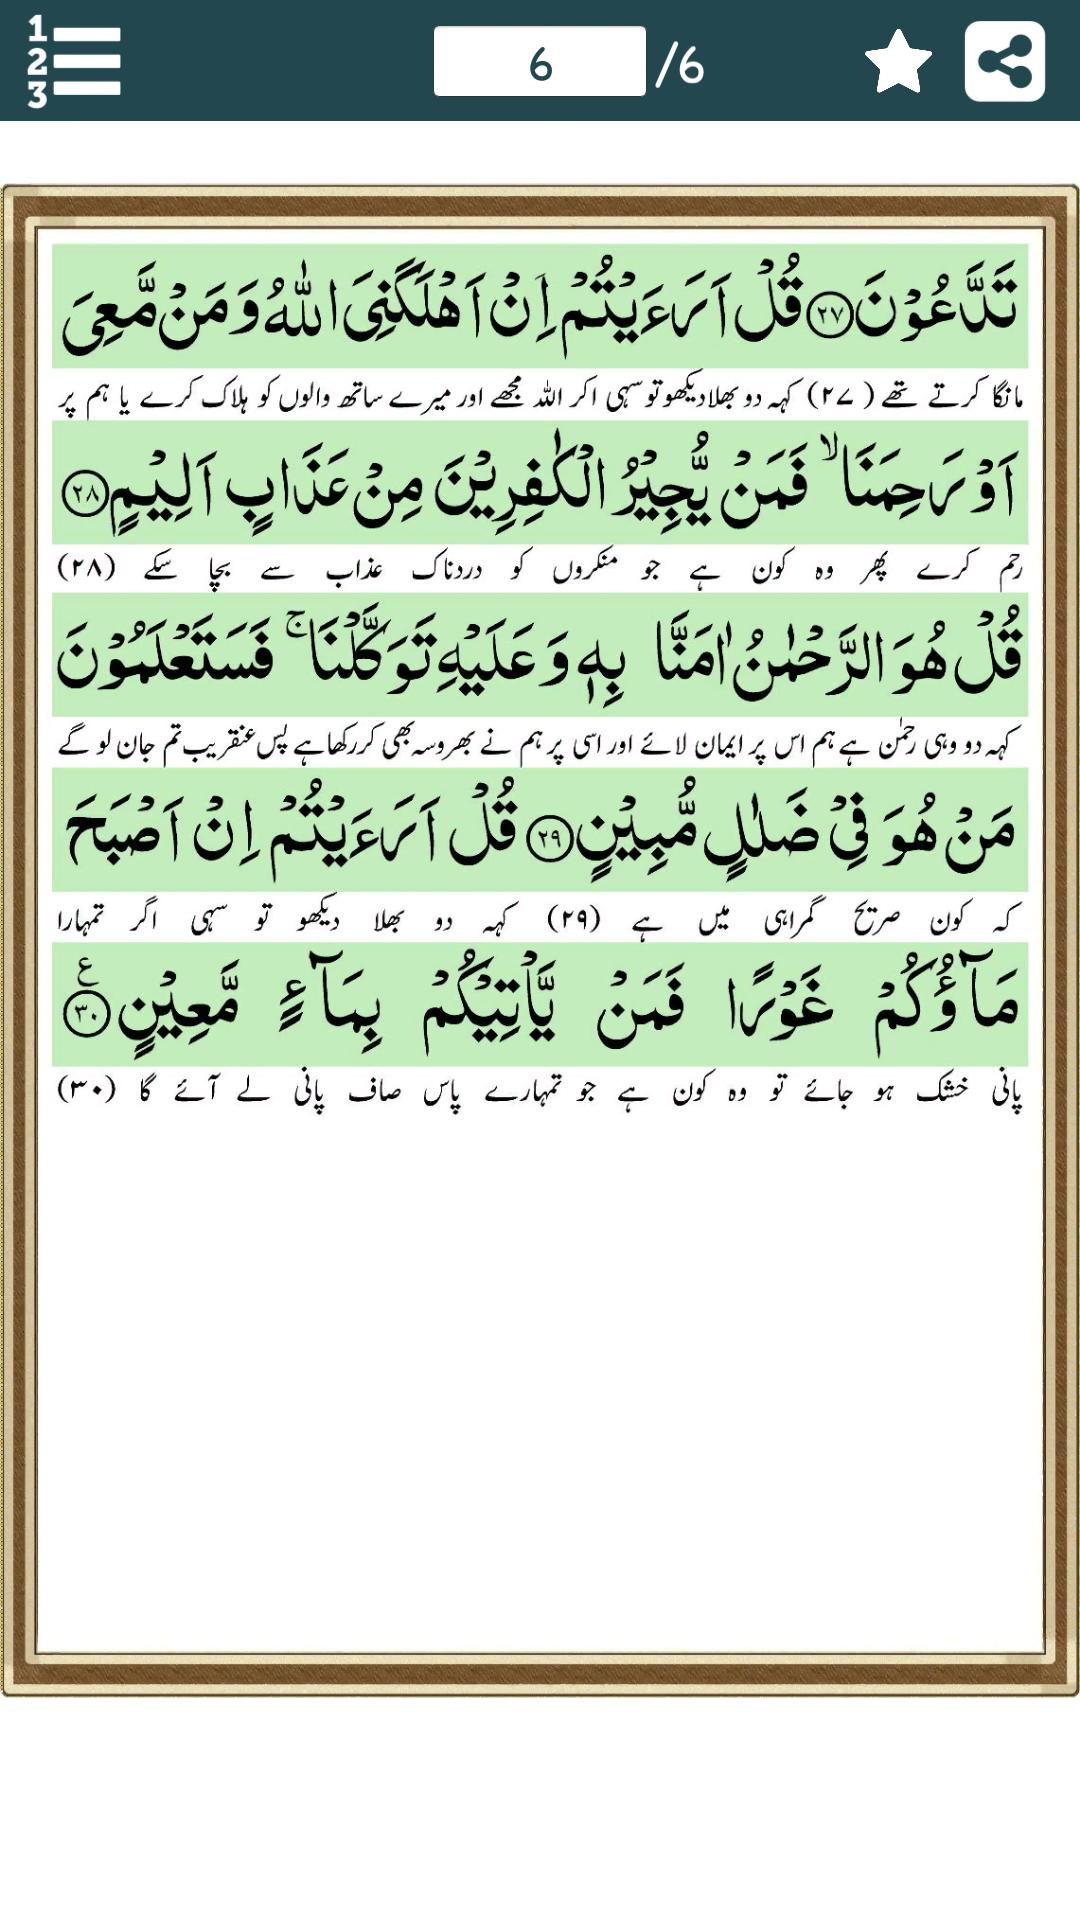 1
2
3
6 /6
تَدَّعُوۡنَ ﴿۲۷﴾ قُلۡ اَرَءَيۡتُمۡ اِنۡ اَهۡلَكَنِىَ اللّٰهُ وَمَنۡ مَّعِىَ
مانگا کرتے تھے (۲۷) کہہ دو بھلا دیکھو تو سہی اکر اللہ مجھے اور میرے ساتھ والوں کو ہلاک کرے یا ہم پر
اَوۡ رَحِمَنَا ۙ فَمَنۡ يُّجِيۡرُ الۡكٰفِرِيۡنَ مِنۡ عَذَابٍ اَلِيۡمٍ ﴿۲۸﴾
رحم کرے پھر وہ کون ہے جو منکروں کو دردناک عذاب سے بچا سکے (۲۸)
قُلۡ هُوَ الرَّحۡمٰنُ اٰمَنَّا بِهٖ وَعَلَيۡهِ تَوَكَّلۡنَا ۚ فَسَتَعۡلَمُوۡنَ
کہہ دو وہی رحمٰن ہے ہم اس پر ایمان لائے اور اسی پر ہم نے بھروسہ بھی کر رکھا ہے پس عنقریب تم جان لو گے
مَنۡ هُوَ فِىۡ ضَلٰلٍ مُّبِيۡنٍ ﴿۲۹﴾ قُلۡ اَرَءَيۡتُمۡ اِنۡ اَصۡبَحَ
کہ کون صریح گمراہی میں ہے (۲۹) کہہ دو بھلا دیکھو تو سہی اگر تمہارا
مَآؤُكُمۡ غَوۡرًا فَمَنۡ يَّاۡتِيۡكُمۡ بِمَآءٍ مَّعِيۡنٍ ﴿۳۰﴾ ع
پانی خشک ہو جائے تو وہ کون ہے جو تمہارے پاس صاف پانی لے آئے گا (۳۰)